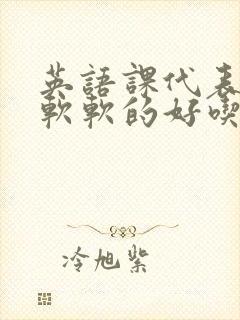 英語課代表
軟軟的好喫
冷旭紫